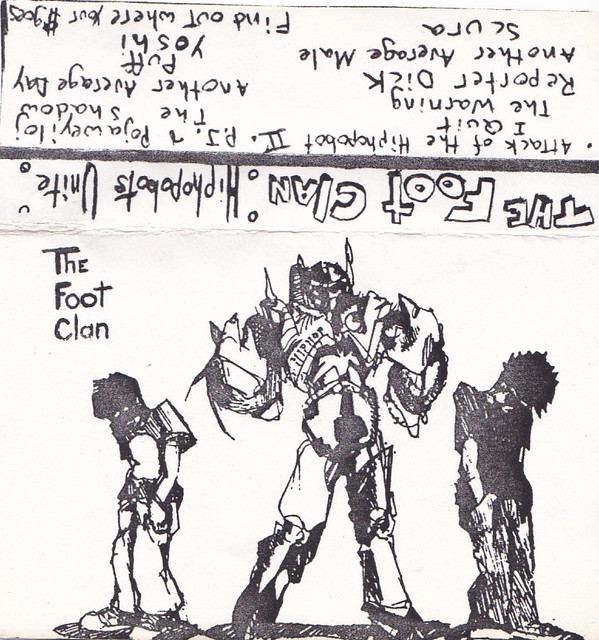 THE FOOT CLAN: Hiphopobots Unite:
• Attack of the Hiphopobot
I Quit
The Warning
Reporter Dick
Another Average Male
Scura
II. P.J. n Pojaweyiloj
The Shadow
Another Average Day
Puff
Yoshi
Find out where your $ goes
The
Foot
Clan
HIPHOP